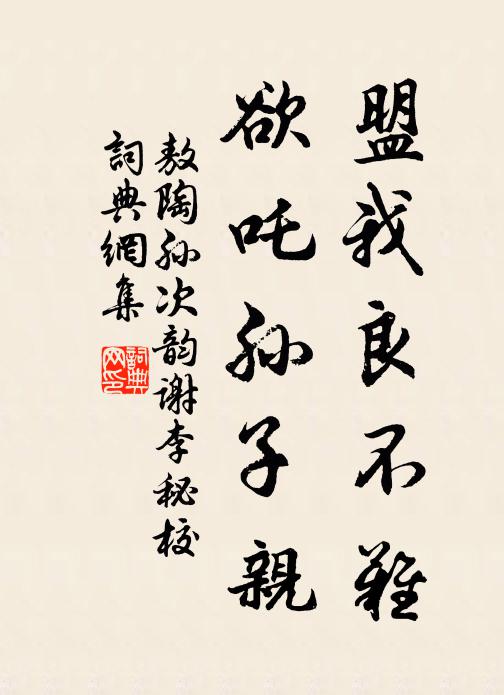 盟我良不難
欲吒孫子親
敖陶孫次韵謝李秘校
詞典網集
詞典网印